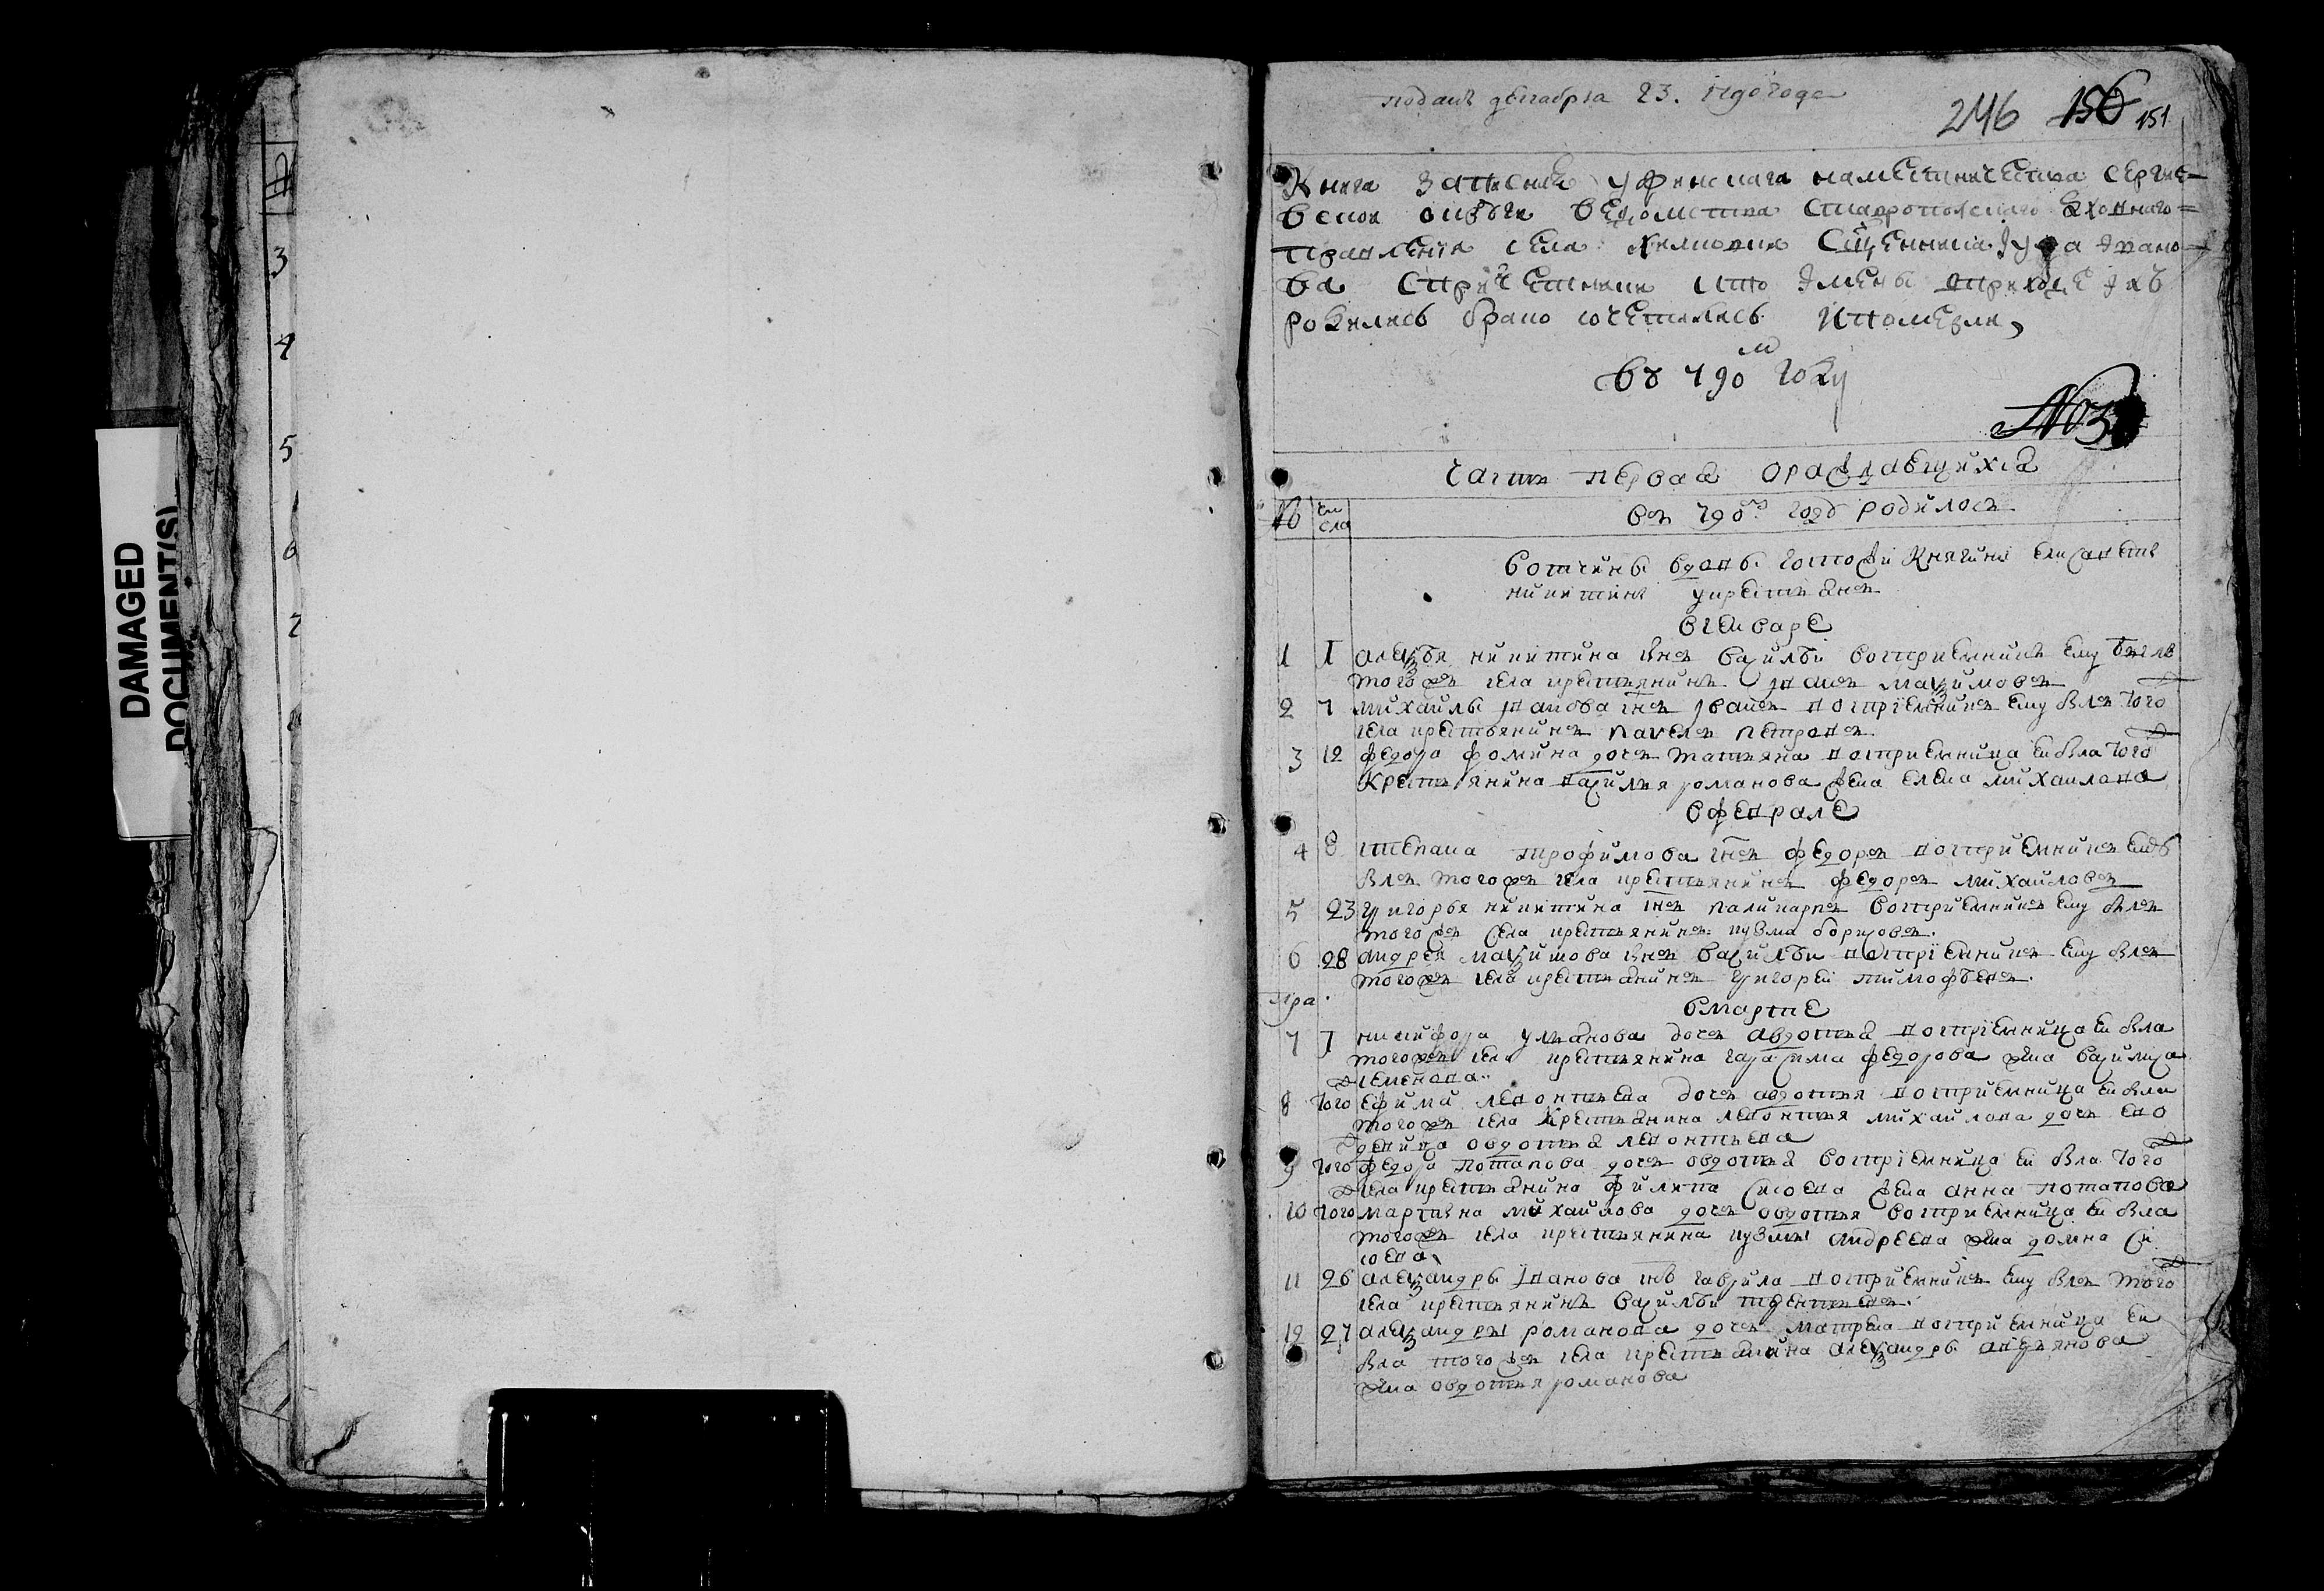 DAMAGED
DOCUMENT(S)
3
4
5
6
7
подана декабря 23. 1790 года
246 156 151
Книга записная уфимскаго наместничества сергие=
вской округи ведомства ставропольского духовнаго=
правления села Сщенника Ивано=
ва спричетники кто имены вприходе ихъ
родились брако сочетались ипомерли,
въ 790м году
№ 3
часть первая ораждающихся
№ чи
сла
въ 790м году родилось
вотчины вдовы госпожи княгини елисаветы
никитины укрестьянъ
вгенваре
1 1 алексѣя никитина снъ василѣи восприемникъ ему былъ
тогожъ села крестьянинъ иванъ максимовъ
2 7 михайлы иванова снъ иванъ восприемникъ ему былъ того ж
села крестьянинъ павелъ петровъ
3 12 федора фомина дочь татьяна восприемница еи была того ж
крестьянина василья романова жена елена михаилова
вфеврале
4 8 степана трофимова снъ федоръ восприемникъ ему
былъ тогожъ села крестьянинъ федоръ михаиловъ
5 23 григорья никитина снъ поликарпъ восприемникъ ему былъ
тогожъ села крестьянинъ кузма борисовъ.
6 28 андрея максимова снъ василѣи восприемникъ ему былъ
тогожъ села крестьянинъ григореи тимофѣевъ.
вмарте
7 1 никифора ульянова дочь авдотья восприемница еи была
тогожъ села крестьянина гарасима федорова жена василиса
семенова..
8 того ефима леонтьева дочь авдотья восприемница еи была
тогожъ села крестьянина леонтья михаилова дочь ево
девица овдотья леонтьева
9 того федора потапова дочь овдотья восприемница еи была того ж
села крестьянина филипа сысоева жена анна потапова
10 того мартына михаилова дочь овдотья восприемница еи была
тогожъ села крестьянина кузмы андреева жена домна си
соева
11 26 александры иванова снъ гаврила восприемникъ ему былъ того ж
села крестьянинъ василѣи терентьевъ.
12 27 александры романова дочь матрена восприемница еи
была тогожъ села крестьянина александры
жена овдотья романова